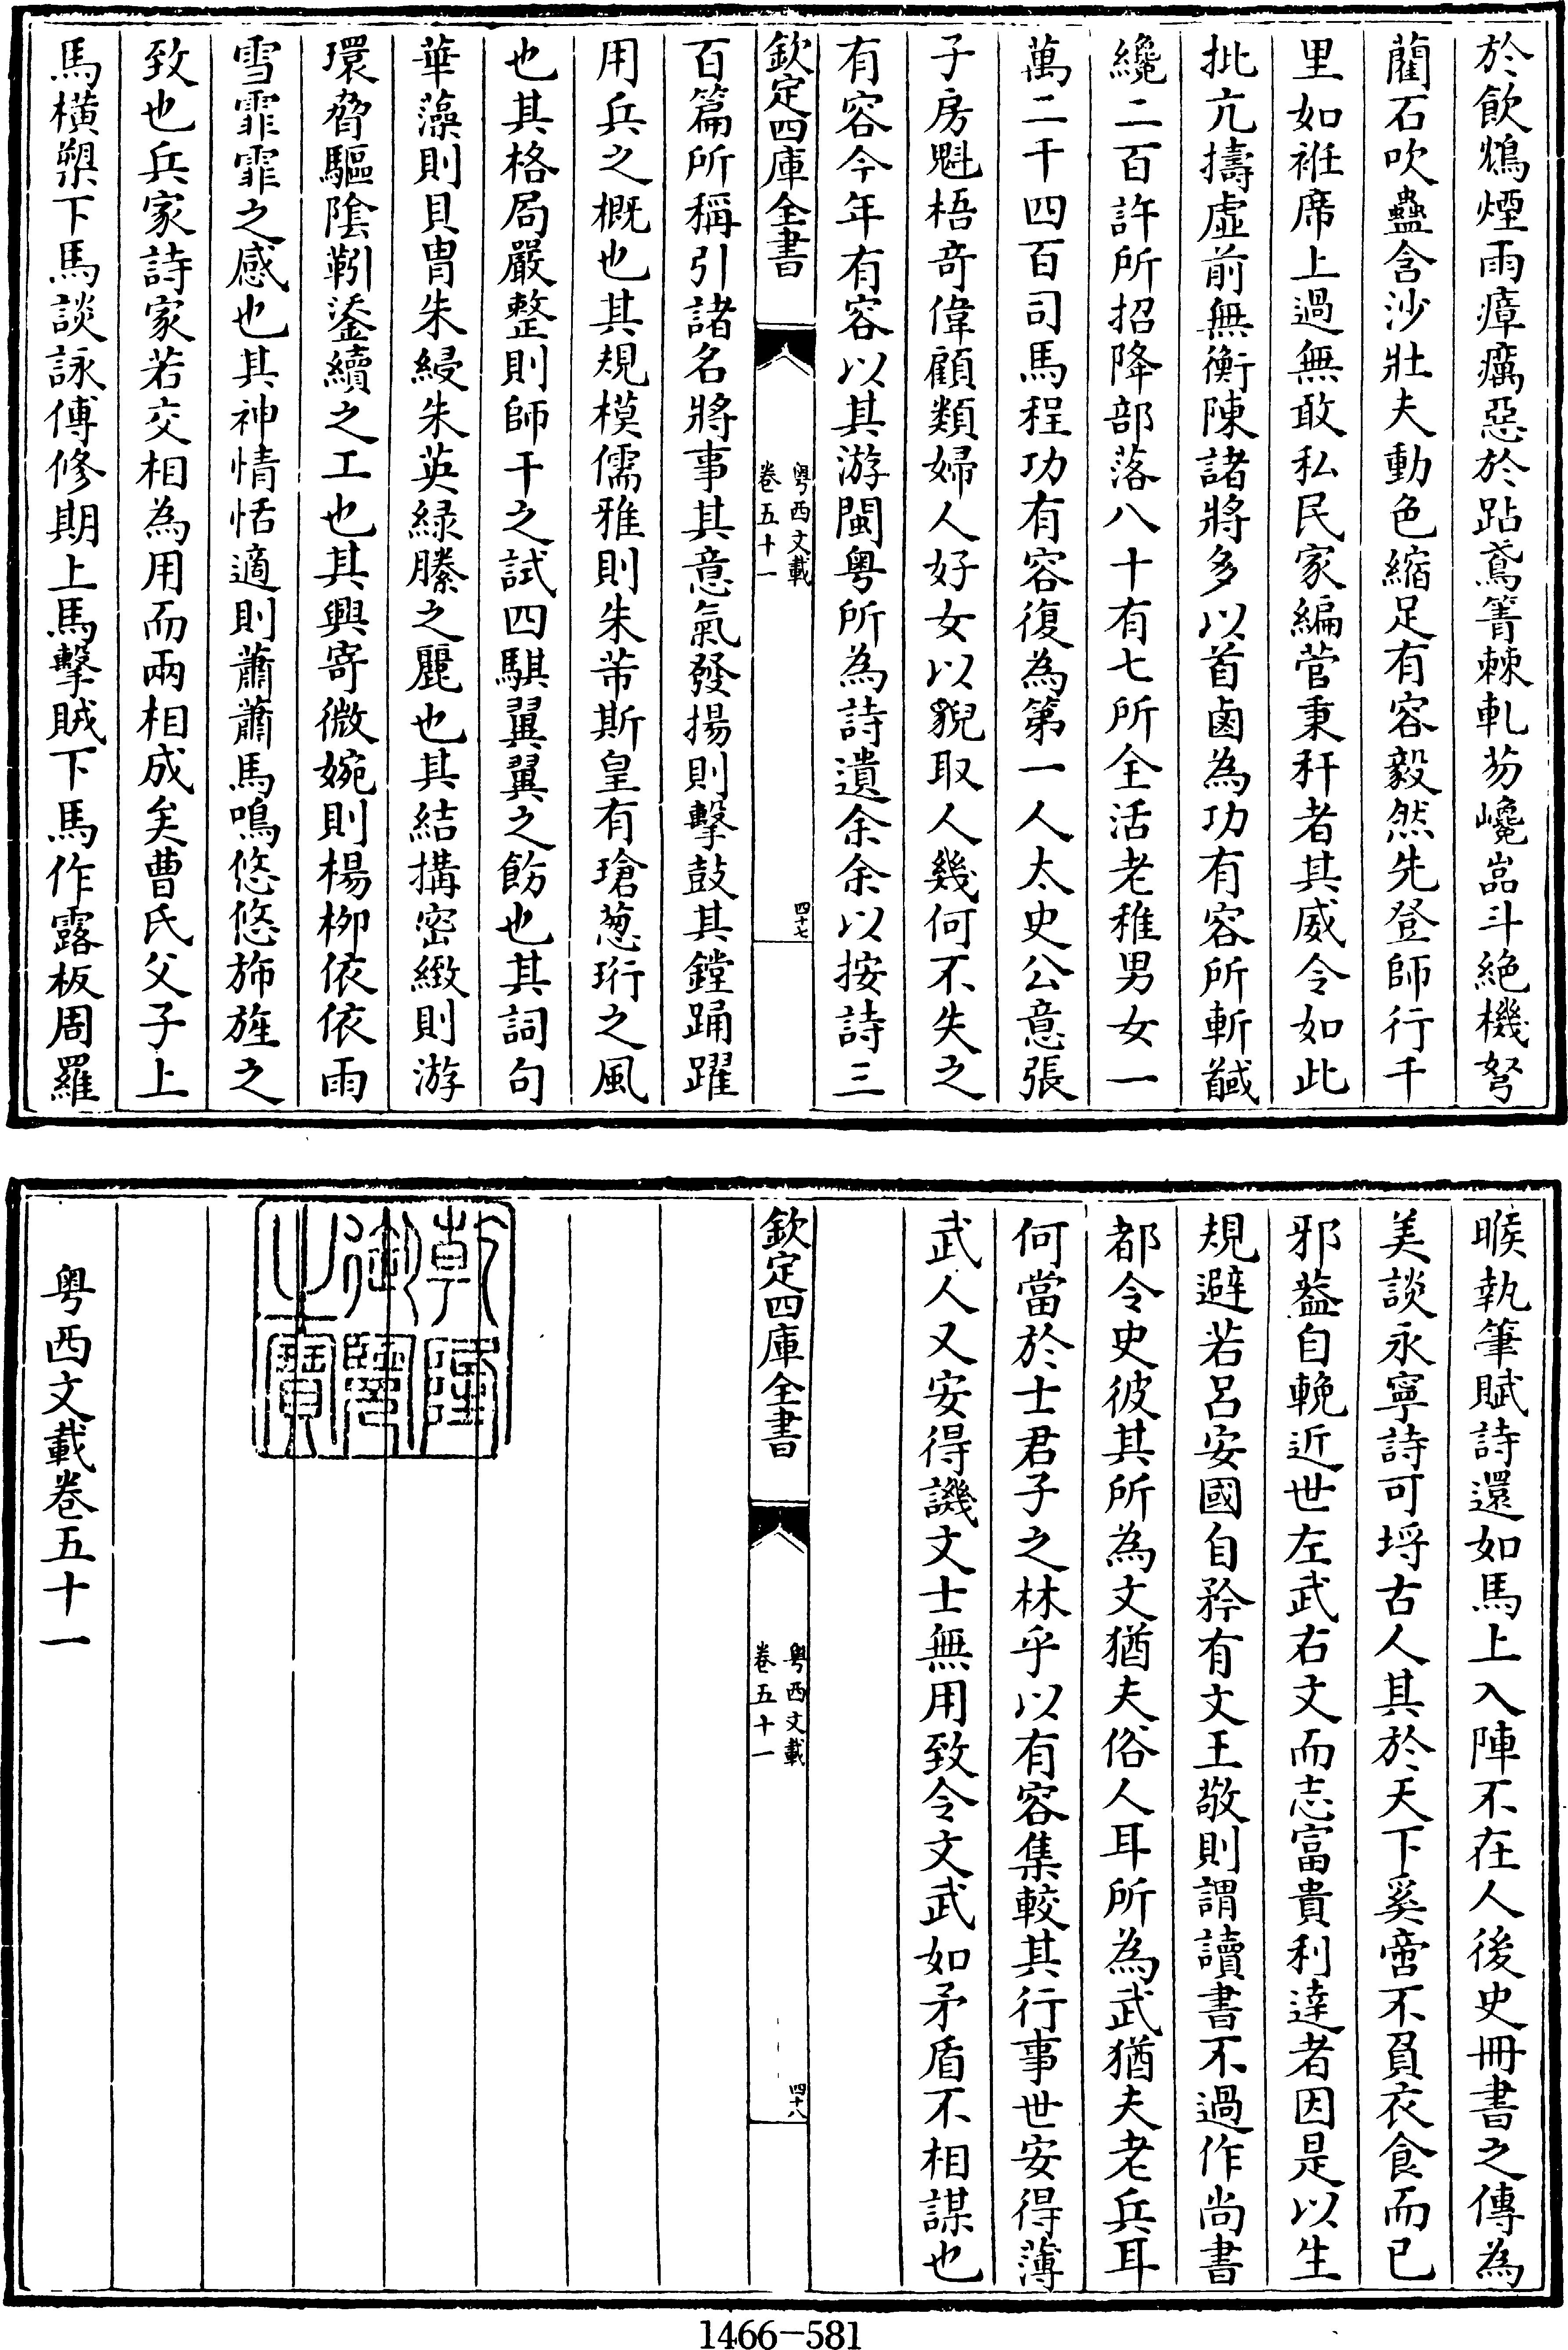 於飲鴆煙雨瘴癘惡於跕鳶箐棘軋芴巉嵓斗絶機弩
藺石吹蠱含沙壯夫動色縮足有容毅然先登師行千
里如袵席上過無敢私民家編菅秉秆者其威令如此
批亢擣虛前無衡陳諸將多以首鹵為功有容所斬馘
纔二百許所招降部落八十有七所全活老稚男女一
萬二千四百司馬程功有容復為第一人太史公意張
子房魁梧奇偉顧類婦人好女以貌取人幾何不失之
有容今年有容以其游閩粤所為詩遺余余以按詩三
欽定四庫全書
粤西文載
卷五十一
四十七
百篇所稱引諸名將事其意氣發揚則擊鼓其鏜踊躍
用兵之概也其規模儒雅則朱芾斯皇有瑲葱珩之風
也其格局嚴整則師干之試四騏翼翼之飭也其詞句
華藻則貝胄朱綅朱英緑縢之麗也其結搆密緻則游
環脅驅陰靷鋈續之工也其興寄微婉則楊柳依依雨
雪霏霏之感也其神情恬適則蕭蕭馬鳴悠悠斾旌之
致也兵家詩家若交相為用而兩相成矣曹氏父子上
馬横槊下馬談詠傅修期上馬擊賊下馬作露板周羅
睺執筆賦詩還如馬上入陣不在人後史冊書之傳為
美談永寧詩可埒古人其於天下奚啻不負衣食而已
邪葢自輓近世左武右文而志富貴利達者因是以生
規避若呂安國自矜有文王敬則謂讀書不過作尚書
都令史彼其所為文猶夫俗人耳所為武猶夫老兵耳
何當於士君子之林乎以有容集較其行事世安得薄
武人又安得譏文士無用致令文武如矛盾不相謀也
欽定四庫全書
粤西文載
卷五十一
四十八
乾隆
御覽
之寶
粤西文載卷五十一
1466-581